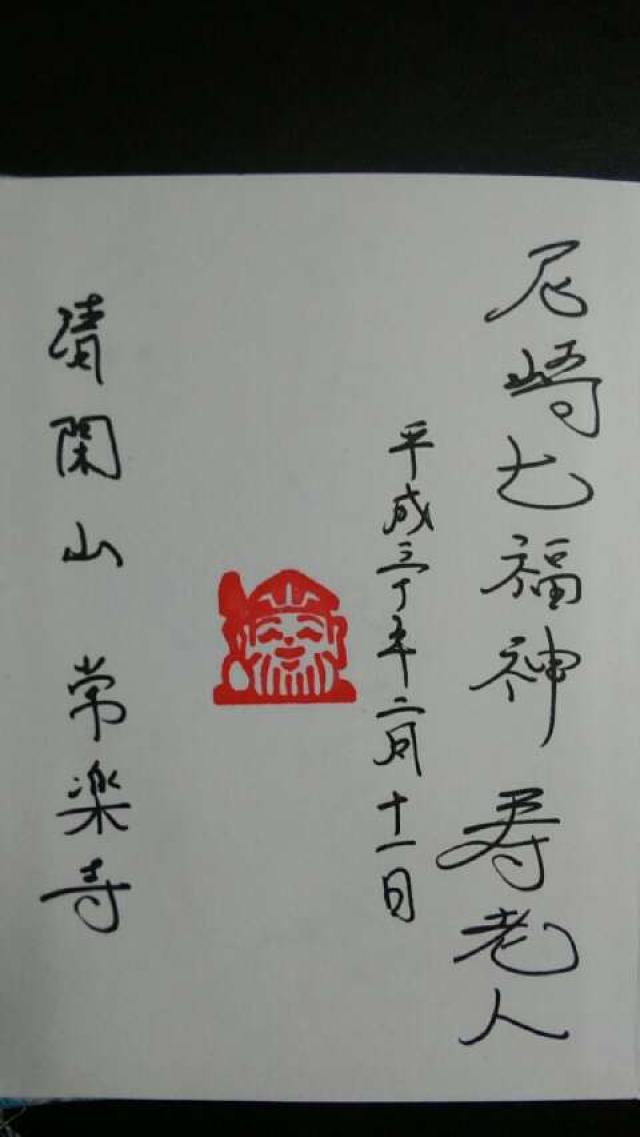 尼崎七福神 寿老人
平成三十年二月十一日
清閑山 常楽寺